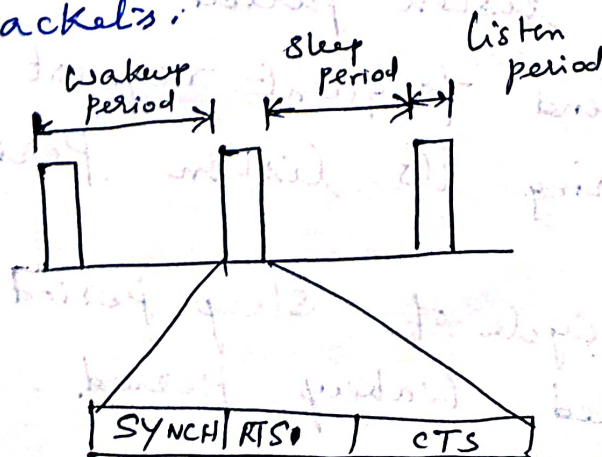 ackets:
Wakeup
period
Sleep
period
Listen
period
SYNCH RTS CTS